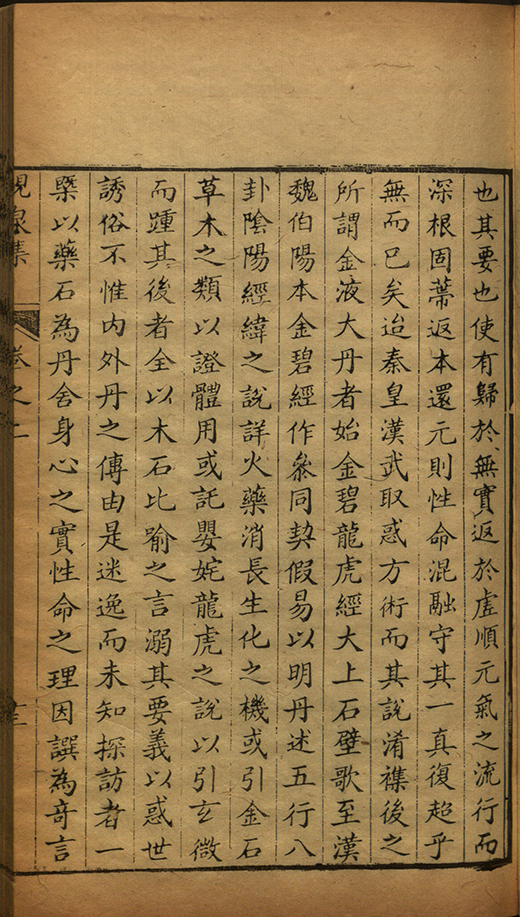 也其要也使有歸於無實返於虛順元氣之流行而
深根固蔕返本還元則性命混融守其一真復超乎
無而已矣迨秦皇漢武取惑方術而其說淆襍後之
所謂金液大丹者始金碧龍虎經大上石壁歌至漢
魏伯陽本金碧經作叅同契假易以明丹述五行八
卦陰陽經緯之說詳火藥消長生化之機或引金石
草木之類以證體用或託嬰姹龍虎之說以引玄微
而踵其後者全以木石比喻之言溺其要義以惑世
誘俗不惟内外丹之傳由是迷逸而未知探訪者一
槩以藥石為丹舍身心之實性命之理因譔為奇言
峴泉集 卷之二 十三